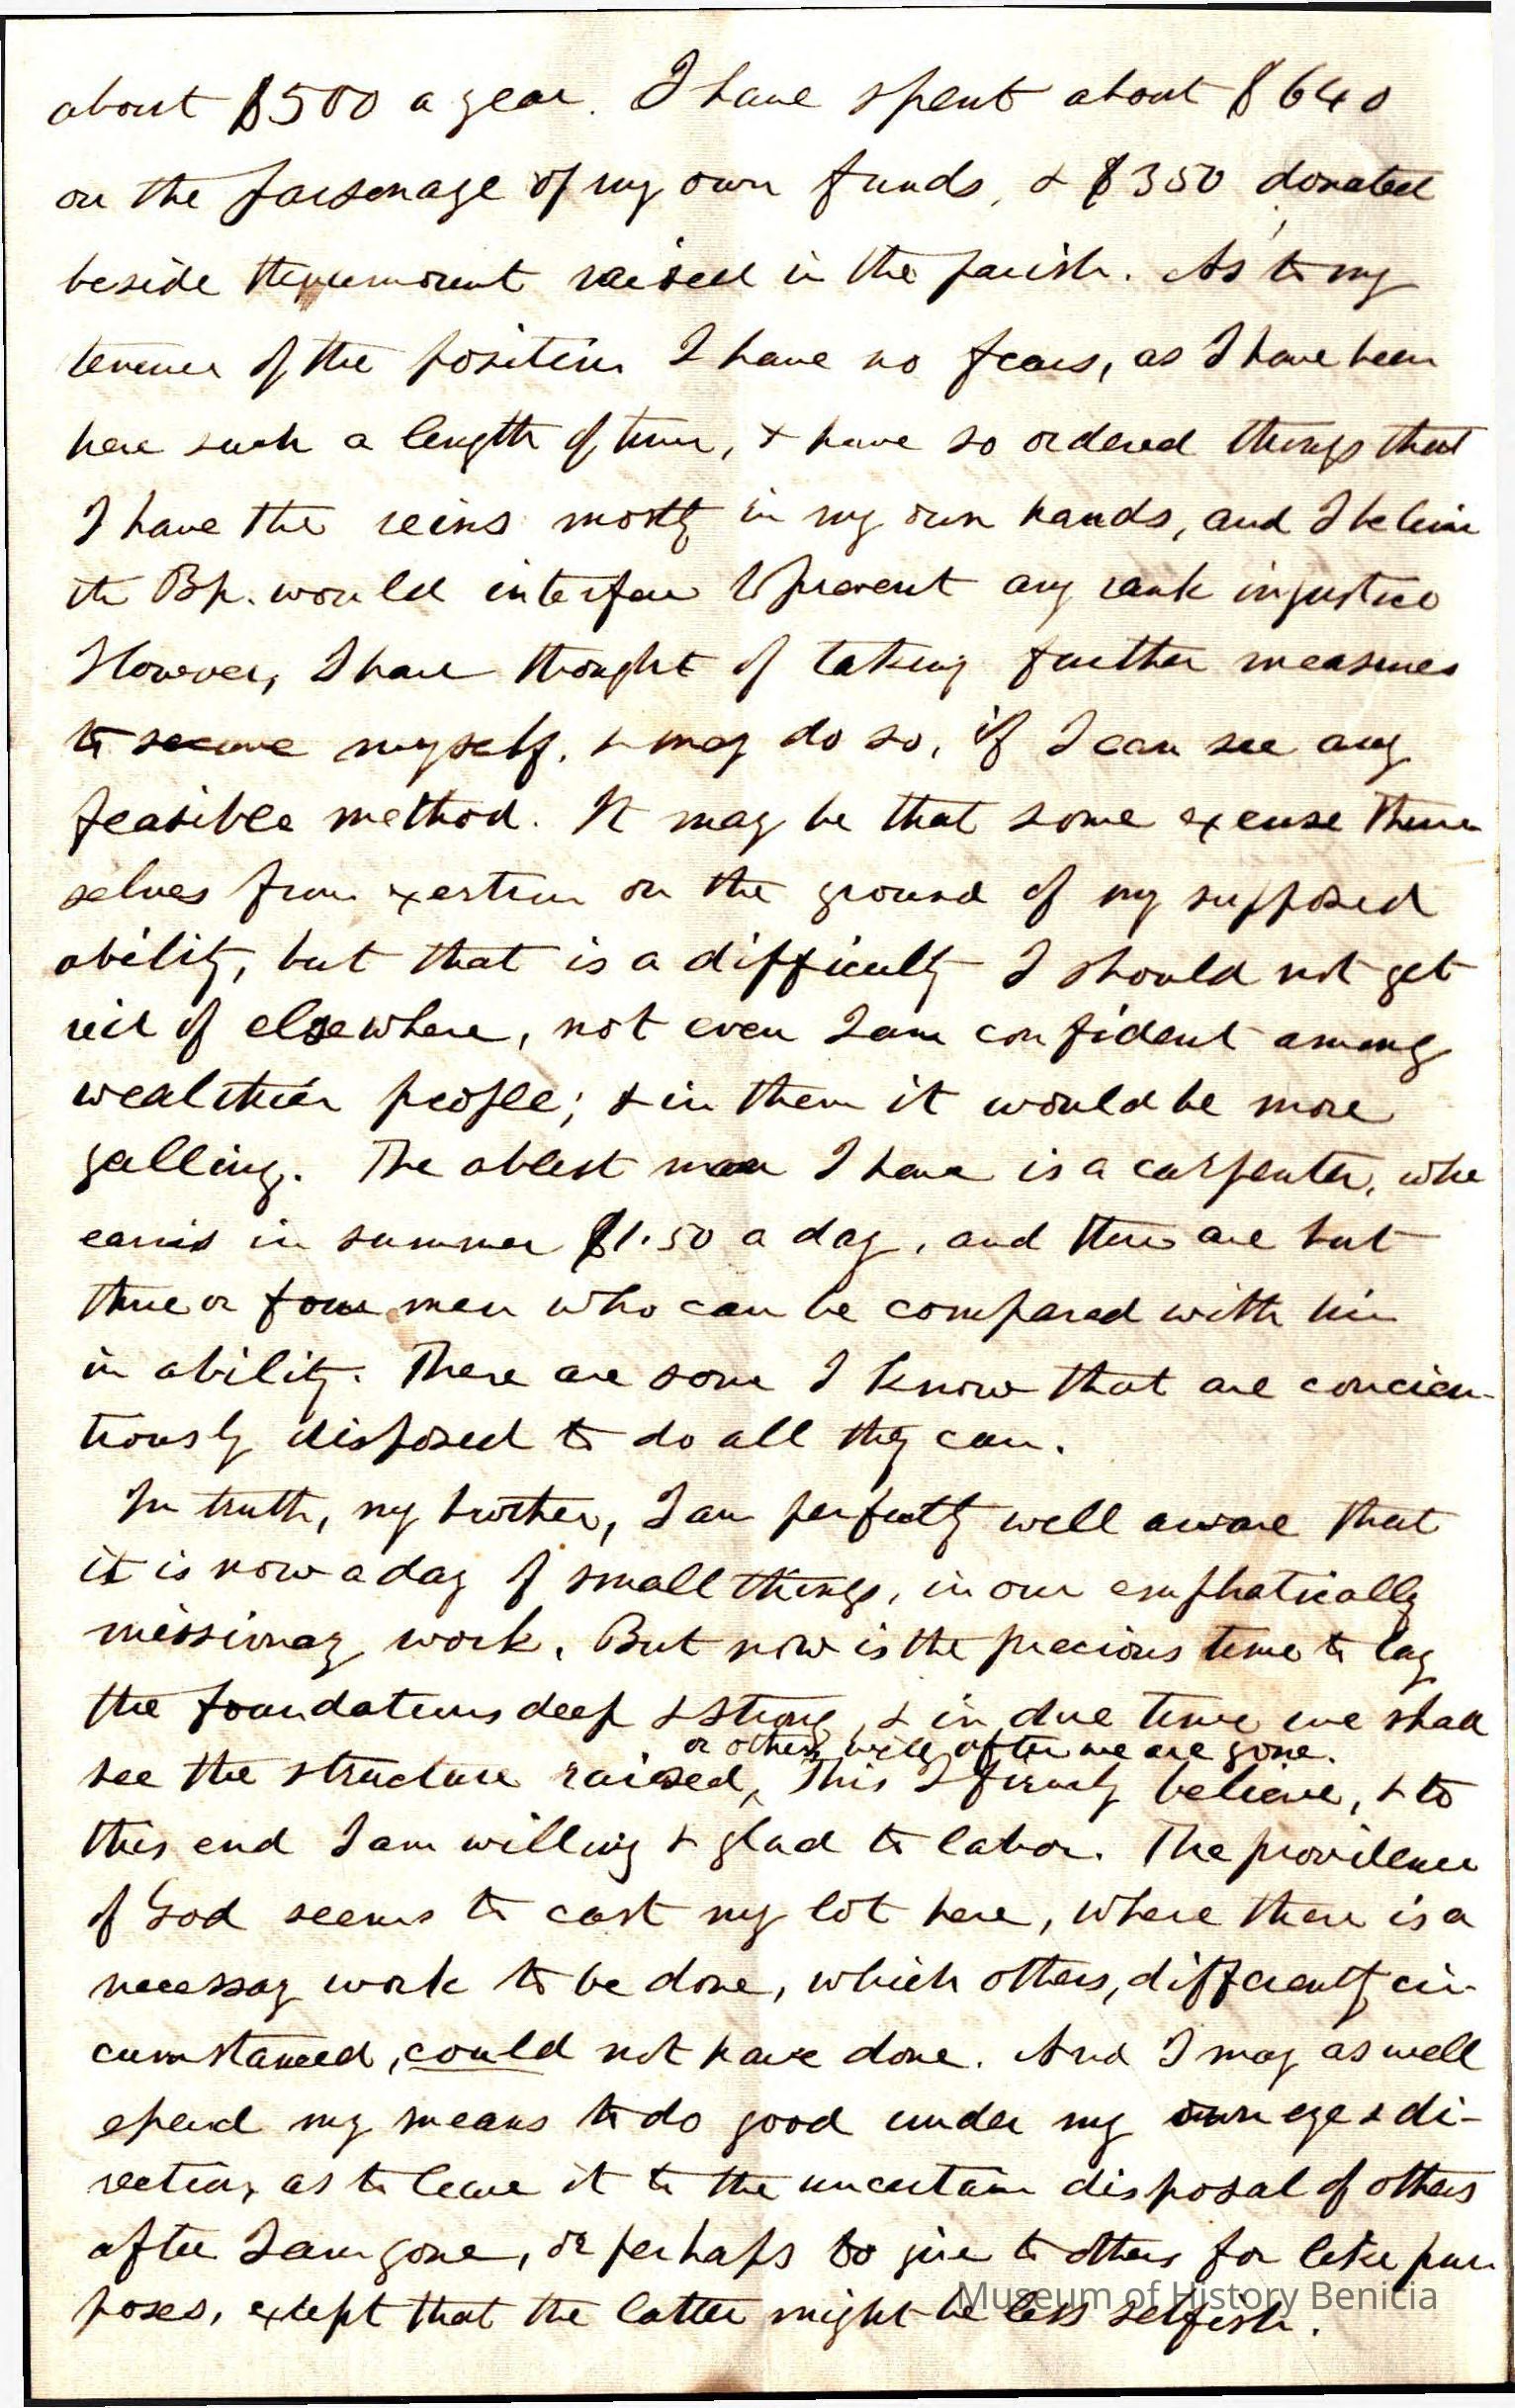 about $500 a year. I have spent about $640
on the parsonage of my own funds, & $350 donated
beside the amount raised in the parish. As to my
tenure of the position I have no fears, as I have been
here such a length of time, & have so ordered things that
I have the reins mostly in my own hands, and I believe
the Bp. would interfere to prevent any rank injustice
However, I have thought of taking further measures
to secure myself, & may do so, if I can see any
feasible method. It may be that some excuse them
selves from exertion on the ground of my supposed
ability, but that is a difficulty I should not get
rid of elsewhere, not even I am confident among
wealthier people; & in them it would be more
galling. The ablest man I have is a carpenter, who
earns in summer $1.50 a day, and there are but
three or four men who can be compared with him
in ability. There are some I know that are concien-
tiously disposed to do all they can.
In truth, my brother, I am perfectly well aware that
it is now a day of small things, in our emphatically
missionary work. But now is the precious time to lay
the foundations deep & strong, & in due time we shall
or others will after we are gone.
see the structure raised, This I firmly believe, & to
this end I am willing & glad to labor. The providence
of God seems to cast my lot here, where there is a
necessary work to be done, which others, differently cir-
cumstanced, could not have done. And I may as well
spend my means to do good under my own eye & di-
rection, as to leave it to the uncertain disposal of others
after I am gone, or perhaps to give to others for like pur
poses, exept that the latter might be less selfish.
Museum of History Benicia